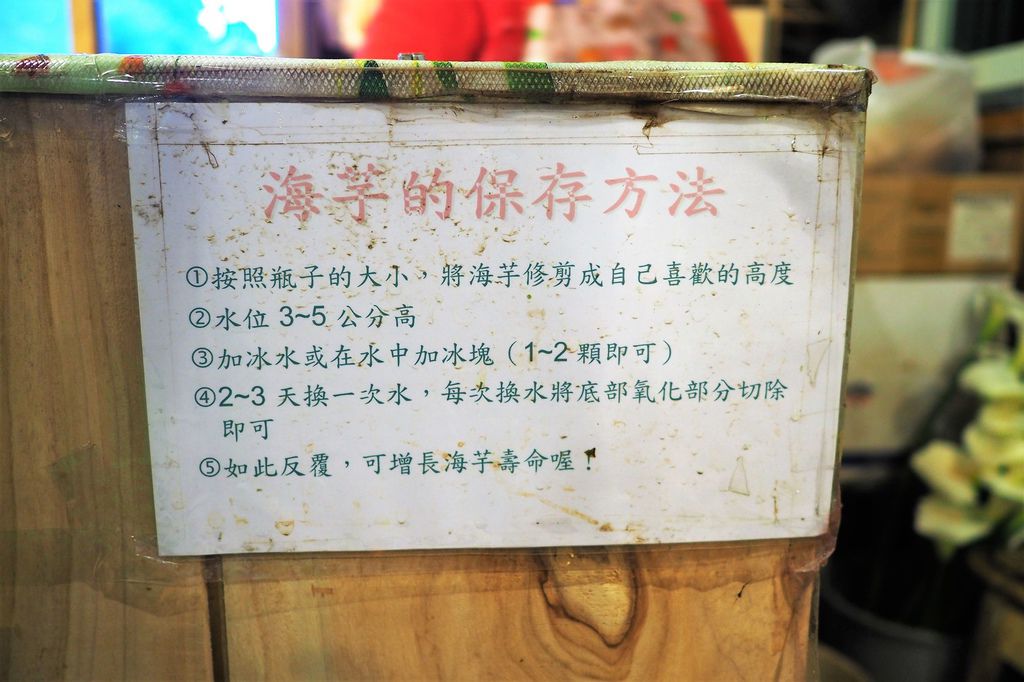 海芋的保存方法
①按照瓶子的大小，將海芋修剪成自己喜歡的高度
②水位 3~5 公分高
③加冰水或在水中加冰塊（1~2 顆即可）
④2~3 天換一次水，每次換水將底部氧化部分切除
即可
⑤如此反覆，可增長海芋壽命喔！